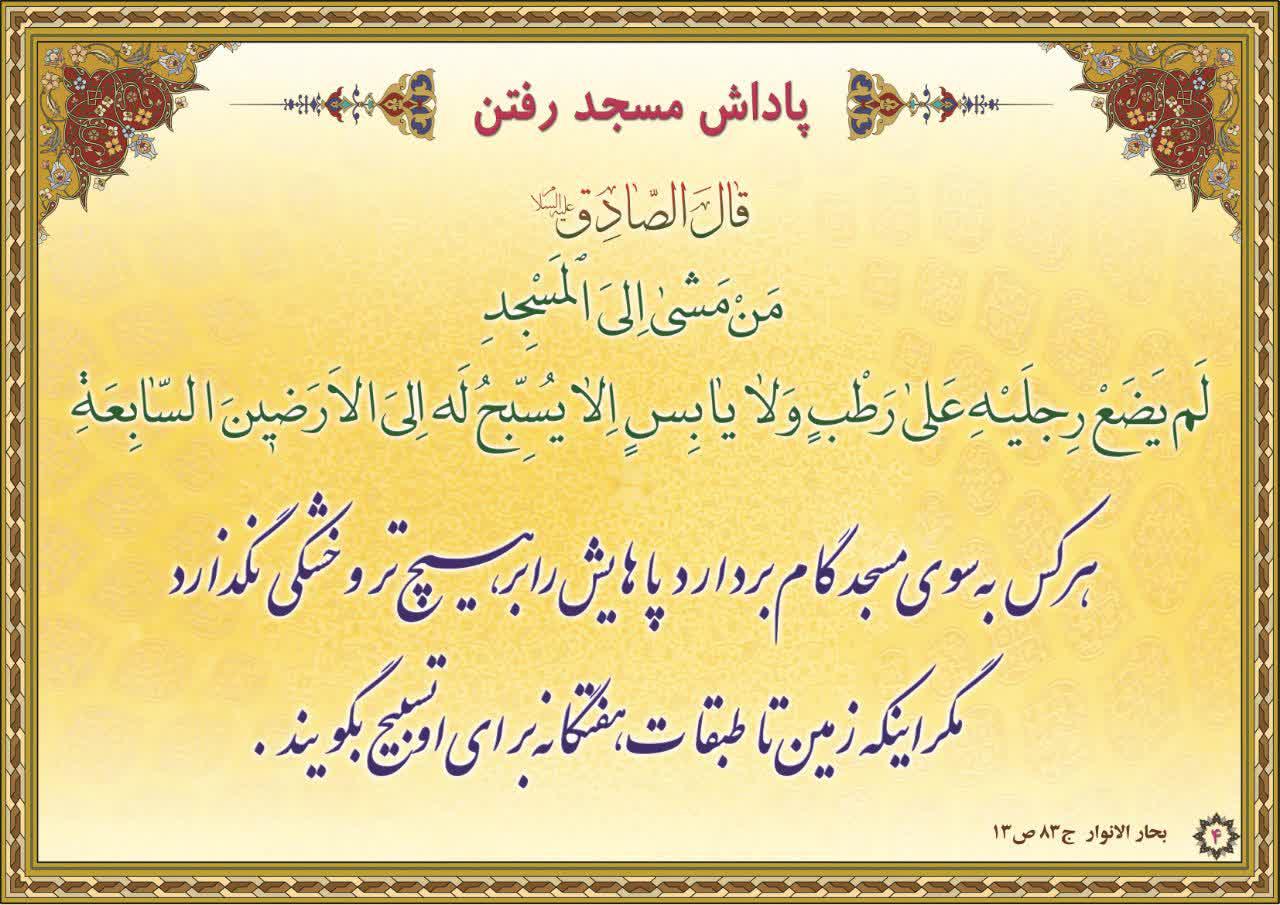 پاداش مسجد رفتن
قَالَ الصَّادِق علیه السلام
مَنْ مَشىٰ اِلىَ الْمَسْجِدِ
لَم يَضَعْ رِجلَيْهِ عَلىٰ رَطْبٍ وَلاٰ يٰابِسٍ اِلاٰ يُسبِّحُ لَه اِلىَ الاَرَضينَ السّٰابِعَةِ
هرکس به سوی مسجد گام بردارد پاهایش را بر هیچ تر و خشکی نگذارد
مگر اینکه زمین تا طبقات هفتگانه برای او تسبیح بگویند .
بحار الانوار ج۸۳ ص۱۳
۴